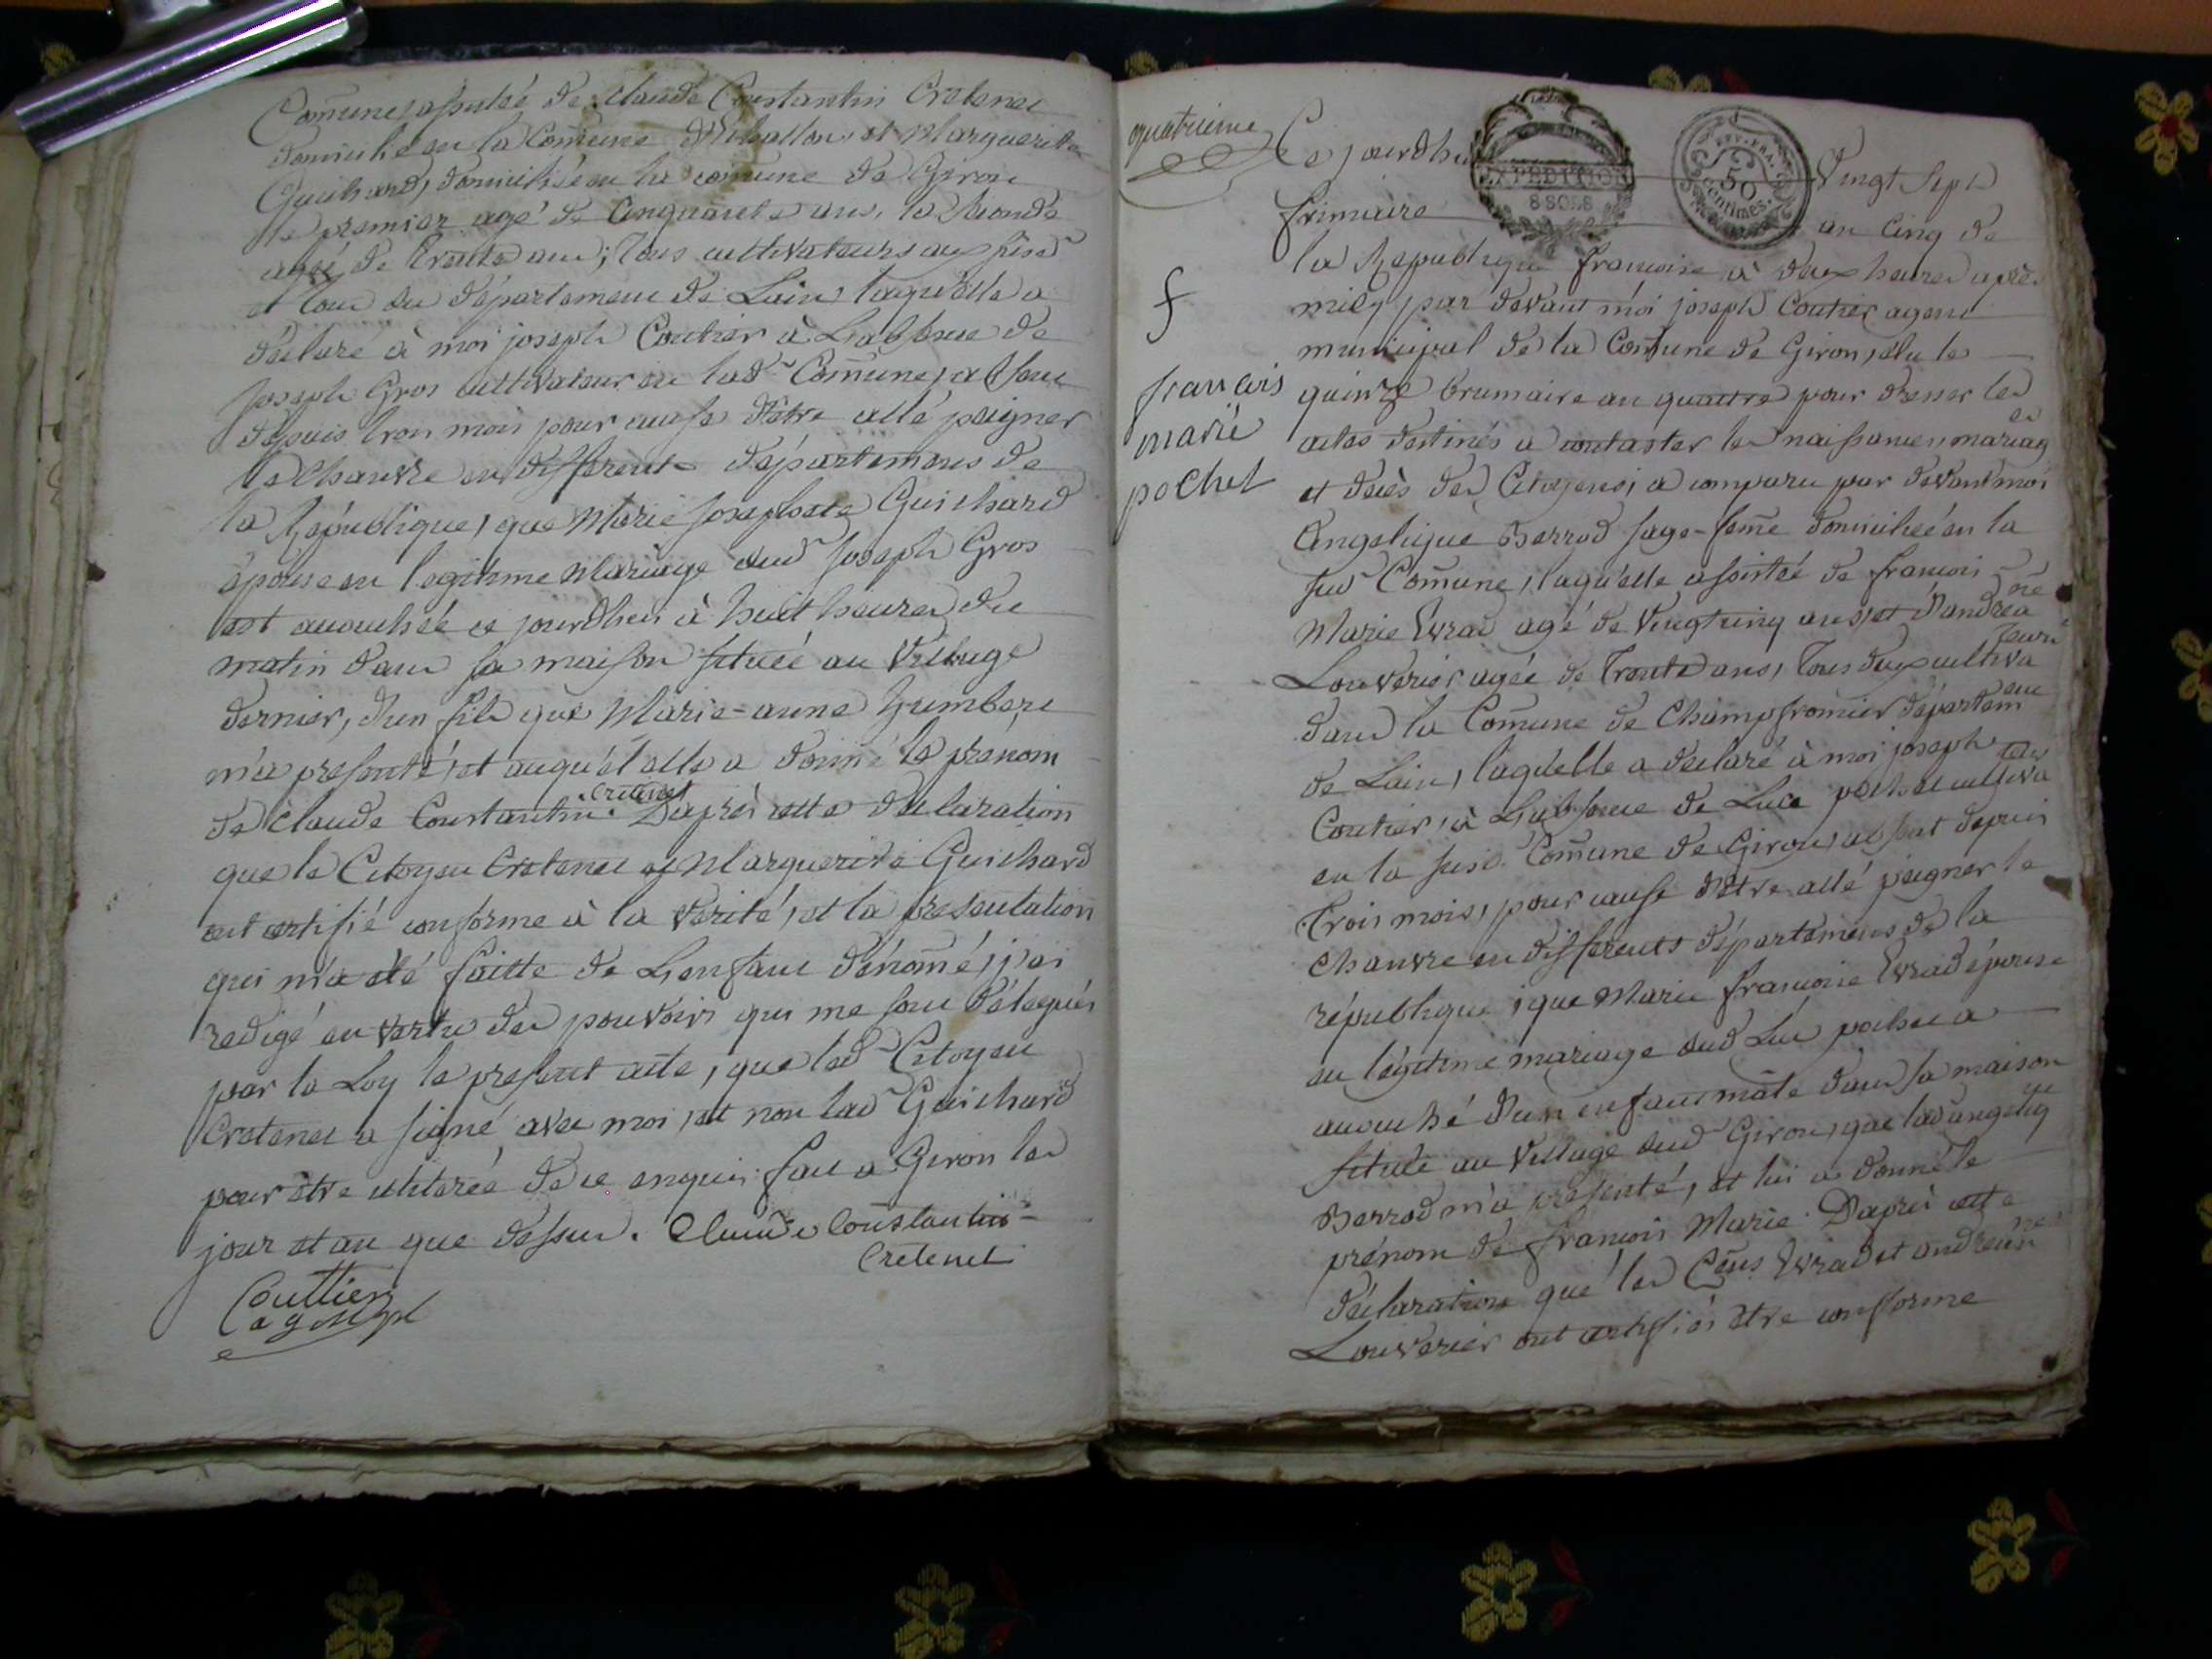 Comune, assistée de Claude Constantin Cretenet
domicilié en la Comune d'Echallon, et Marguerite
Guichard, domiciliée en la comune de Giron
le premier agé de cinquante ans, la seconde
agée de trente ans; tous cultivateurs aux susd
et tous du département de Lain, laquelle a
déclaré à moi joseph Coutier à Labsence de
Joseph Gros cultivateur en lad Comune, absent
depuis trois mois pour cause d'être allé peigner
le Chanvre en différents départemens de
la République, que Marie Josephete Guichard
épouse en legitime Mariage dud Joseph Gros
est acouchée ce jourdhui à huit heures du
matin dans sa maison située au Village
dernier, d'un fils que Marie-anne humbert
m'a presenté, et auquel elle a donné le prénom
de Claude Constantin. cretenet Daprès cette déclaration
que le Citoyen Cretenet et Marguerite Guichard
ont certifié conforme à la Verité, et la presentation
qui m'a été faitte de Lenfant dénomé, j'ai
redigé en vertu des pouvoirs qui me sont délégués
par la Loy le present acte, que led Citoyen
Cretenet a signé avec moi, et non lad Guichard
pour être illiterée de ce enquis. fait a Giron les
jour et an que dessus. Claude Constantin
Cretenet
Couttier
ag
quatrième
f
francois
marie
pochet
Ce jourdhui Vingt sept
EXPEDITION
8 SOLS
50
centimes.
frimaire an cinq de
la Republique francoise à deux heures après
midy, par devant moi joseph Coutier agent
municipal de la Comune de Giron, élu le
quinze brumaire an quatre pour dresser les
actes destinés a constater les naissances, mariages
et décès des Citoyens, a comparu par devant moi
Angelique Berrod sage-feme domiciliée en la
sud Comune, laquelle assistée de francois
Marie Evrad agé de Vingtcinq ans, et d'andréane
Louverier agée de trente ans, tous deux cultivateurs
dans la Comune de Champfromier département
de Lain, laquelle a déclaré à moi joseph
Coutier, à Labsence de Luc pochet cultivateur
en la susd. Comune de Giron, absent depuis
trois mois, pour cause d'être allé peigner le
chanvre en différents départemens de la
république, que Marie francoise Evrad épouse
en légitime mariage dud Luc pochet a
acouché d'un enfant mâle dans sa maison
située au Village dud Giron, que lad angeliq
Berrod m'a presenté, et lui a donné le
prénom de francois Marie. Daprès cette
déclaration que les Cens Evrad et andréane
Louverier ont certifiés être conforme